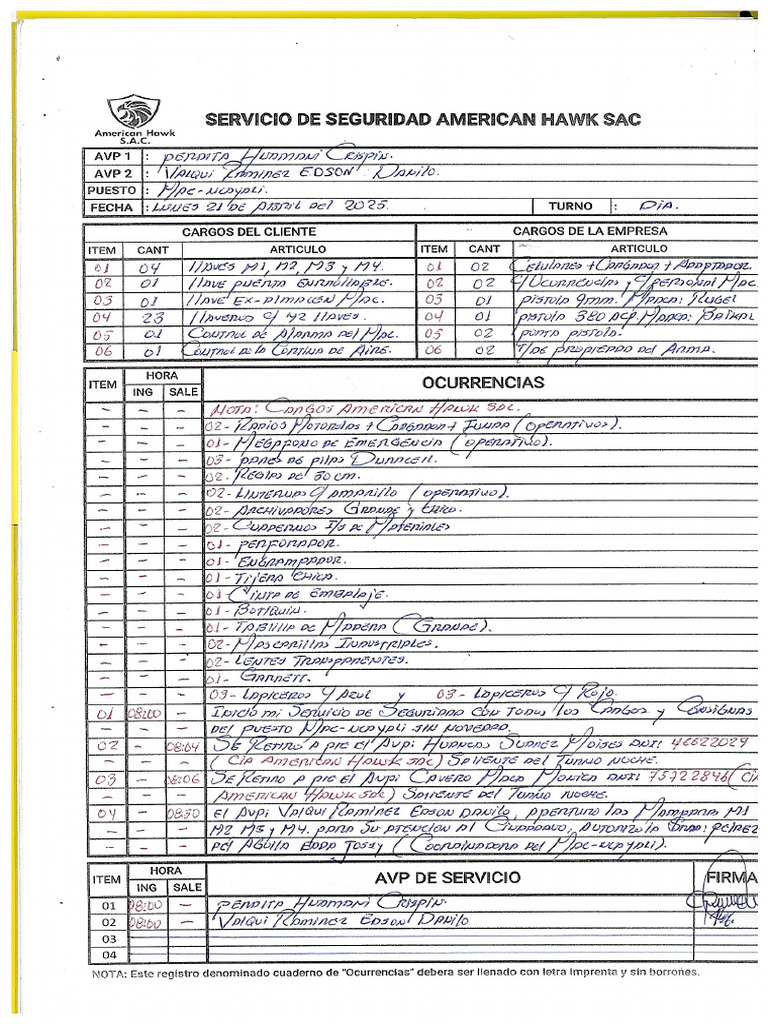 American Hawk
S.A.C.
SERVICIO DE SEGURIDAD AMERICAN HAWK SAC
AVP 1 : PERAITA HUAMANI CRISPIN.
AVP 2 : VALQUI RAMINEZ EDSON DANILO.
PUESTO : MAC-UCAYALI.
FECHA : LUNES 21 DE ABRIL DEL 2025. TURNO : DIA.
CARGOS DEL CLIENTE CARGOS DE LA EMPRESA
ITEM CANT ARTICULO ITEM CANT ARTICULO
01 04 LLAVES M1, M2, M3 y M4. 01 02 CELULARES + CARGADOR + ADAPTADOR.
02 01 LLAVE PUERTA ENROLLABLE. 02 02 C/OCURRENCIAS y C/PERSONAL MAC.
03 01 LLAVE EX-ALMACEN MAC. 03 01 PISTOLA 9MM. MARCA: RUGEL
04 23 LLAVEROS C/ 42 LLAVES. 04 01 PISTOLA 380 ACP. MARCA:
05 01 CONTROL DE ALARMA DEL MAC. 05 02 PORTA PISTOLA.
06 01 CONTROL DE LA CORTINA DE AIRE. 06 02 T/DE PROPIEDAD DEL ARMA.
ITEM HORA OCURRENCIAS
ING SALE
- - - NOTA: CARGOS AMERICAN HAWK SAC.
- - - 02- RADIOS MOTOROLAS + CARGADOR + FUNDA (OPERATIVOS).
- - - 01- MEGAFONO DE EMERGENCIA (OPERATIVO).
- - - 03- PARES DE PILAS DURACELL.
- - - 02- REGLAS DE 30CM.
- - - 02- LINTERNAS C/AMARILLO (OPERATIVO).
- - - 02- ARCHIVADORES GRANDE y CHICO.
- - - 02- CUADERNOS I/S DE MATERIALES
- - - 01- PERFORADOR.
- - - 01- ENGRAMPADOR.
- - - 01- TIJERA CHICA.
- - - 01- CINTA DE EMBALAJE.
- - - 01- BOTIQUIN.
- - - 01- TABLILLA DE MADERA (GRANDE).
- - - 02- MASCARILLAS INDUSTRIALES.
- - - 02- LENTES TRANSPARENTES.
- - - 01- GARRETT.
- - - 03- LAPICEROS C/ AZUL y 03- LAPICEROS C/ ROJO.
01 08:00 - INICIO MI SERVICIO DE SEGURIDAD CON TODOS LOS CARGOS y CONSIGNAS
- - - DEL PUESTO MAC-UCAYALI SIN NOVEDAD.
02 - 08:04 SE RETIRO A PIE EL AVP: HUANCAS SUAREZ MOISES DNI: 46622029
- - - (CIA AMERICAN HAWK SAC) SALIENTE DEL TURNO NOCHE.
03 - 08:06 SE RETIRO A PIE EL AVP: CAVERO MACA MONICA DNI: 75722846 (CIA
- - - AMERICAN HAWK SAC) SALIENTE DEL TURNO NOCHE.
04 - 08:30 EL AVP: VALQUI RAMINEZ EDSON DANILO, APERTURO LAS MAMPARAS M1
- - - M2 M3 y M4. PARA SU ATENCION AL CIUDADANO, AUTORIZO LA SRA: PEREZ
- - - DEL AGUILA EDDA TOSSY (COORDINADORA DEL MAC-UCAYALI).
ITEM HORA AVP DE SERVICIO FIRMA
ING SALE
01 08:00 - PERAITA HUAMANI CRISPIN.
02 08:00 - VALQUI RAMINEZ EDSON DANILO
03
04
NOTA: Este registro denominado cuaderno de "Ocurrencias" debera ser llenado con letra imprenta y sin borrones.